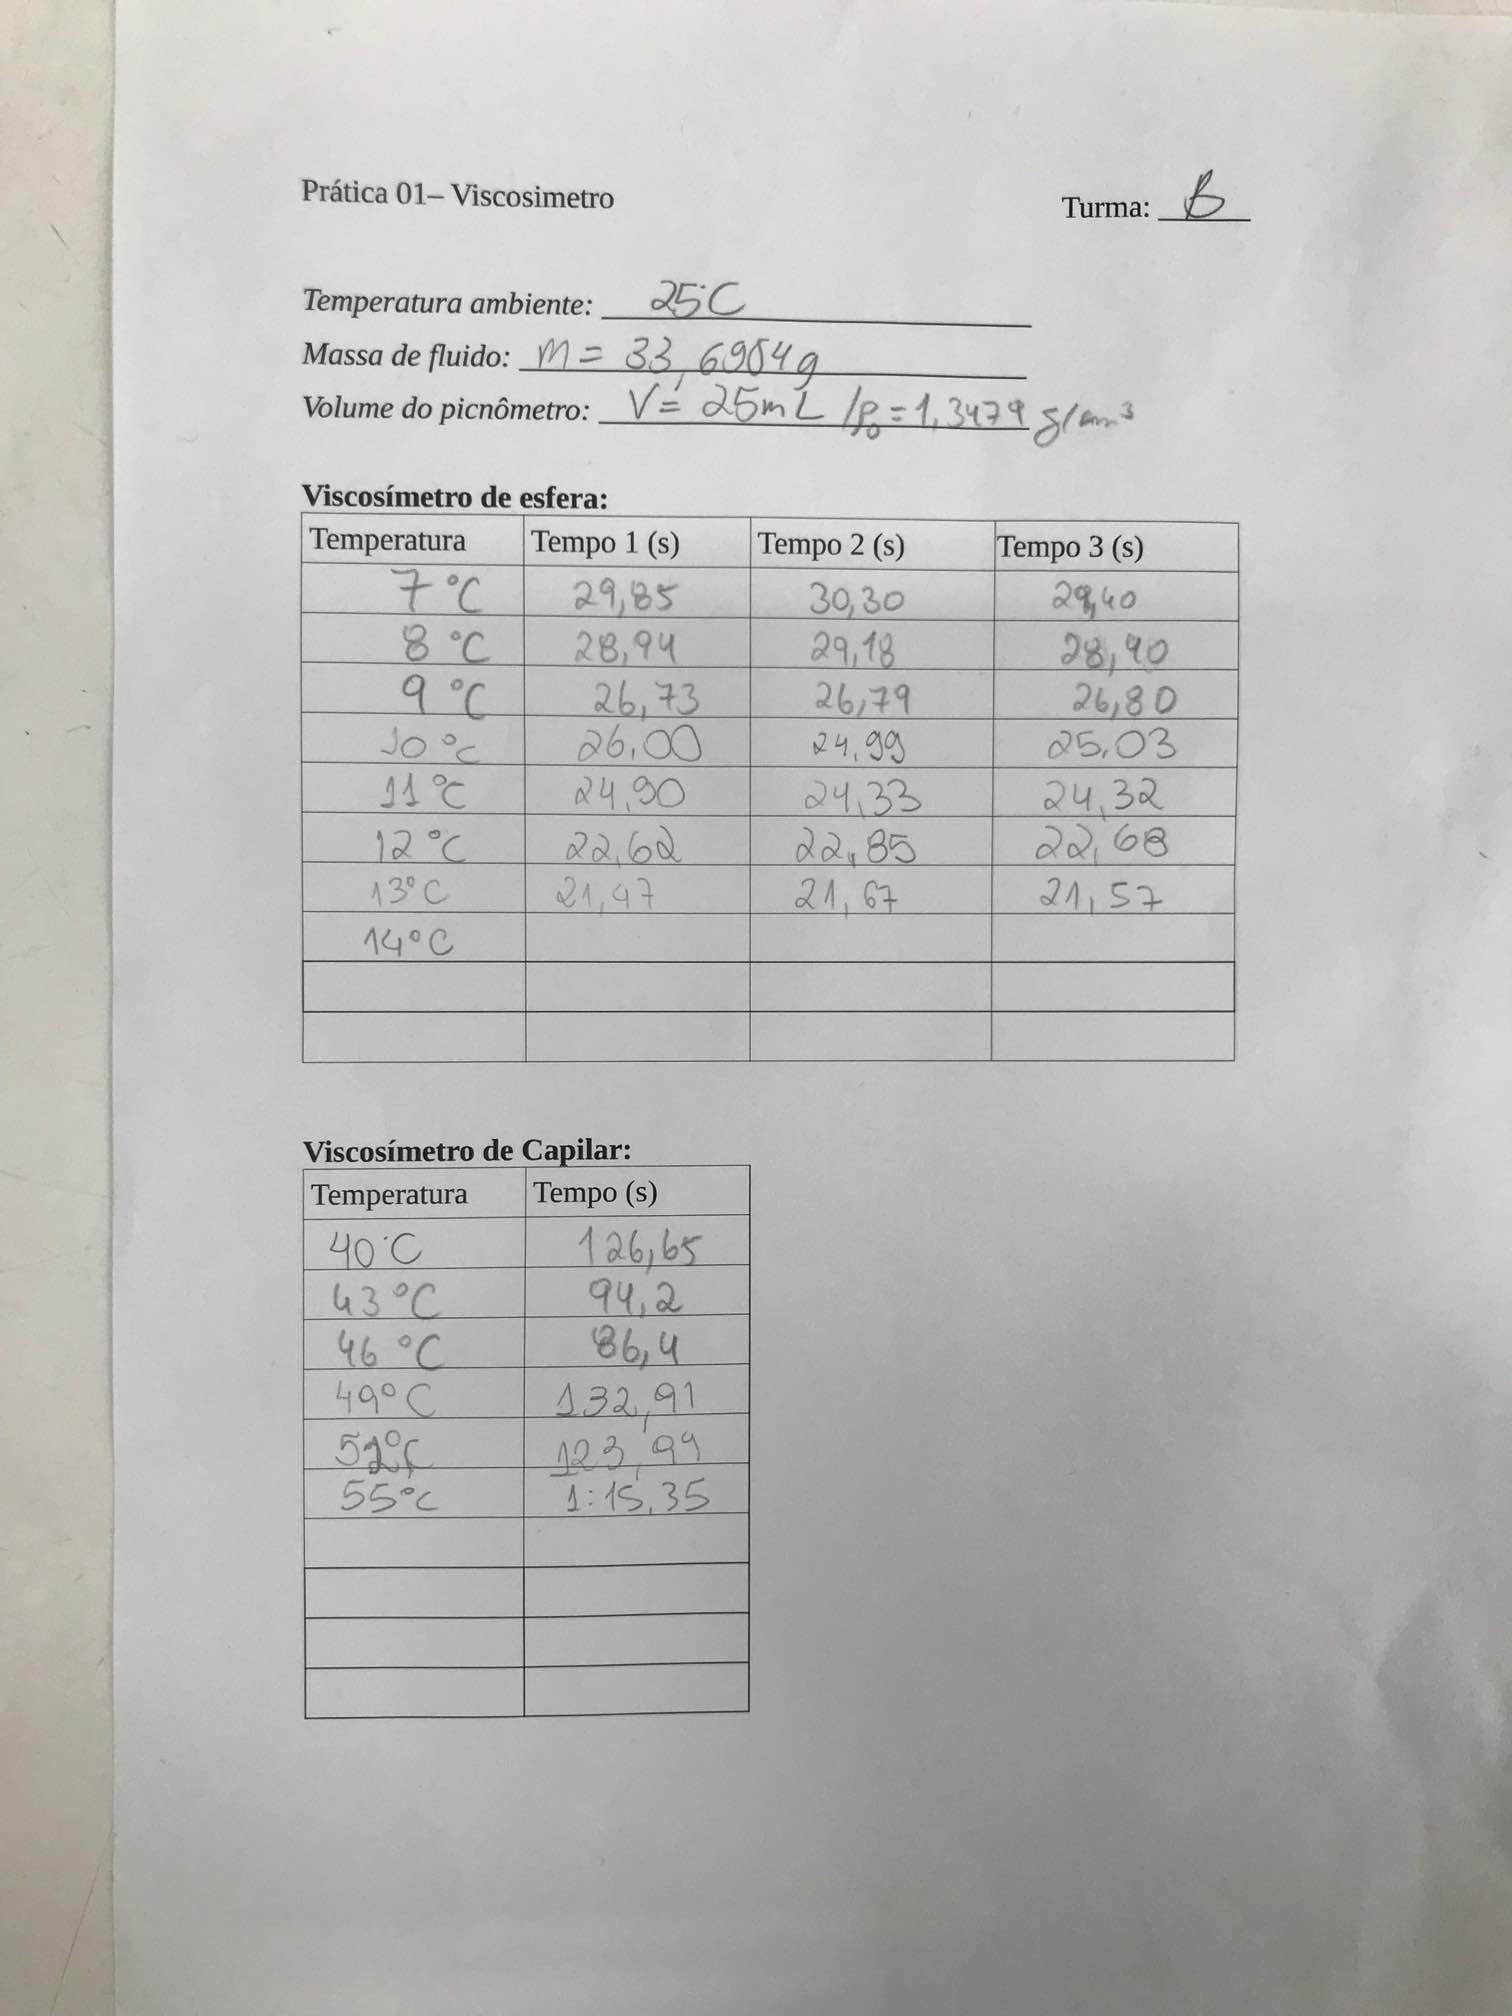 Prática 01– Viscosimetro
Turma: B
Temperatura ambiente: 25°C
Massa de fluido: m = 33,6984g
Volume do picnômetro: V = 25mL /ρ₀ = 1,3479 g/cm³
Viscosímetro de esfera:
Temperatura Tempo 1 (s) Tempo 2 (s) Tempo 3 (s)
7 °C 29,85 30,30 29,40
8 °C 28,94 29,18 28,90
9 °C 26,73 26,79 26,80
10 °C 26,00 24,99 25,03
11 °C 24,90 24,33 24,32
12 °C 22,62 22,85 22,68
13°C 21,47 21,67 21,57
14°C
Viscosímetro de Capilar:
Temperatura Tempo (s)
40°C 126,65
43 °C 94,2
46 °C 86,4
49°C 132,91
52°C 123,99
55°C 1:15,35